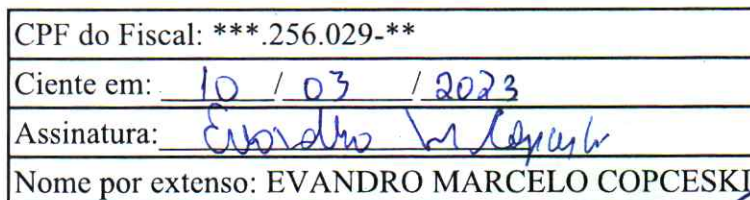 CPF do Fiscal: ***.256.029-**
Ciente em: 10 / 03 / 2023
Assinatura: Evandro M Copceski
Nome por extenso: EVANDRO MARCELO COPCESKI